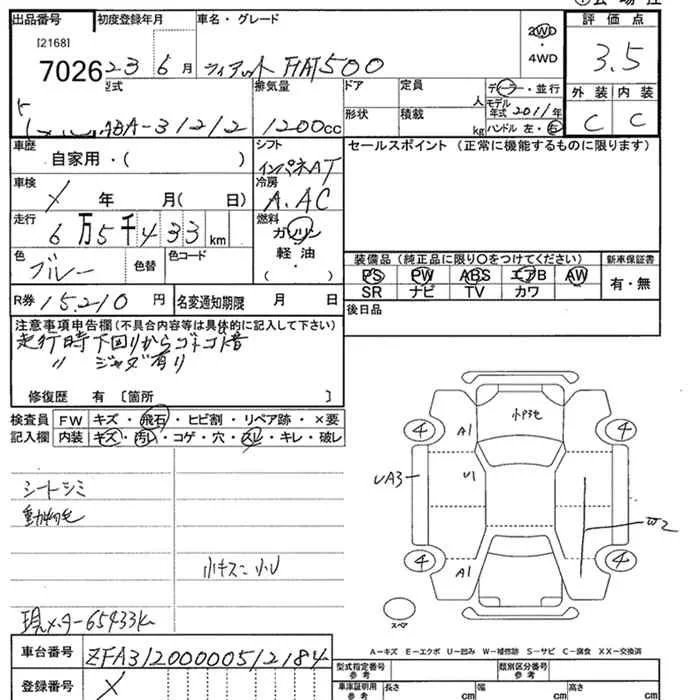 ①会場注
出品番号
初度登録年月
車名・グレード
評価点
[2168]
7026
23 6 月
フィアット FIAT500
2WD
・
4WD
3.5
型式
排気量
ドア
定員
ディーラー・並行
外装
内装
ABA-31212
1200cc
人
形状
積載
kg
モデル年式 2011年
ハンドル 左・右
C
C
車歴
自家用・( )
シフト
インパネAT
セールスポイント (正常に機能するものに限ります)
車検
X 年 月( 日)
冷房
A.AC
走行
6万5千433km
燃料
ガソリン
軽油
・
( )
色
ブルー
色替
色コード
装備品 (純正品に限り○をつけてください)
新車保証書
PS PW ABS エアB AW
SR ナビ TV カワ
有・無
R券 15,210 円
名変通知期限 月 日
後日品
注意事項申告欄(不具合内容等は具体的に記入して下さい)
走行時下回りからゴトゴト音
〃 ジャダ有り
修復歴 有 〔箇所 〕
検査員
記入欄
FW キズ・飛石・ヒビ割・リペア跡・×要
内装 キズ・汚レ・コゲ・穴・スレ・キレ・破レ
シートシミ
動物毛
小キズ 小U
現メーター65433km
A1
U1
A1
UA3
W2
4
4
4
4
スペア
A-キズ E-エクボ U-凹み W-補修跡 S-サビ C-腐食 XX-交換済
車台番号
ZFA31200000512184
登録番号
X
型式指定番号
参考
類別区分番号
参考
車庫証明用
参考
長さ cm
幅 cm
高さ cm